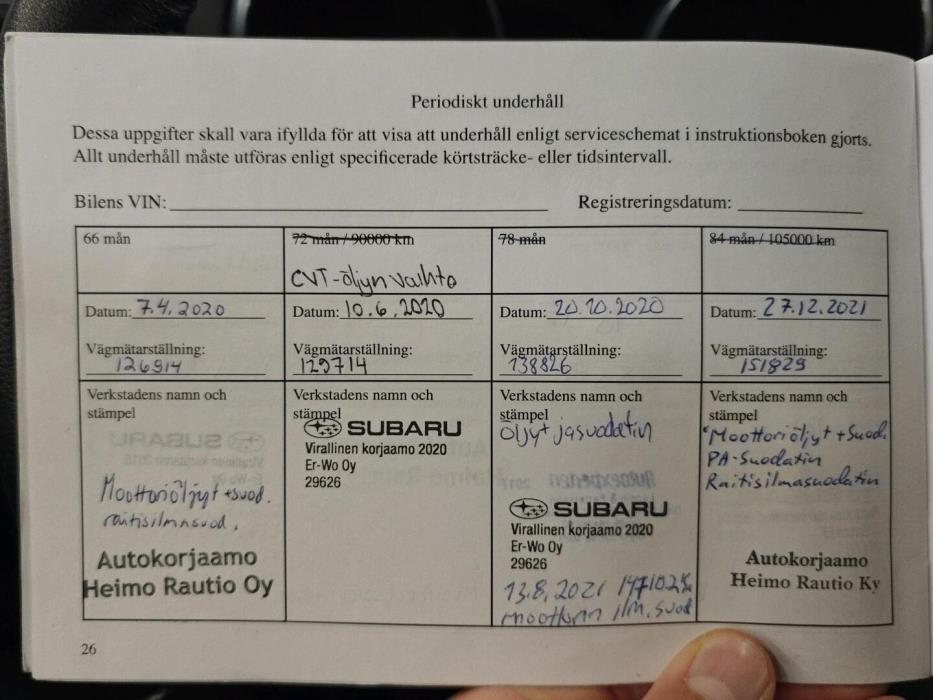 Periodiskt underhåll
Dessa uppgifter skall vara ifyllda för att visa att underhåll enligt serviceschemat i instruktionsboken gjorts.
Allt underhåll måste utföras enligt specificerade körtsträcke- eller tidsintervall.
Bilens VIN:
Registreringsdatum:
66 mån
Datum: 7.4.2020
Vägmätarställning:
126914
Verkstadens namn och
stämpel
Moottoriöljyt + suod.
raitisilmasuod.
Autokorjaamo
Heimo Rautio Oy
72 mån / 90000 km
CVT-öljyn vaihto
Datum: 10.6.2020
Vägmätarställning:
129714
Verkstadens namn och
stämpel
SUBARU
Virallinen korjaamo 2020
Er-Wo Oy
29626
78 mån
Datum: 20.10.2020
Vägmätarställning:
138826
Verkstadens namn och
stämpel
öljyt ja suodatin
SUBARU
Virallinen korjaamo 2020
Er-Wo Oy
29626
13.8.2021 147102km
moottorin ilm.suod
84 mån / 105000 km
Datum: 27.12.2021
Vägmätarställning:
151829
Verkstadens namn och
stämpel
Moottoriöljyt + Suod.
PA-Suodatin
Raitisilmasuodatin
Autokorjaamo
Heimo Rautio Ky
26